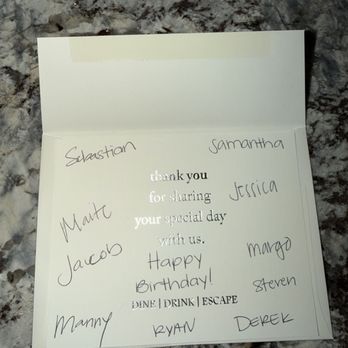 Sebastian
Samantha
thank you
for sharing
your special day
with us.
Jessica
Maite
Jacob
Happy
Birthday!
margo
Steven
DINE | DRINK | ESCAPE
Manny
RYAN
DEREK